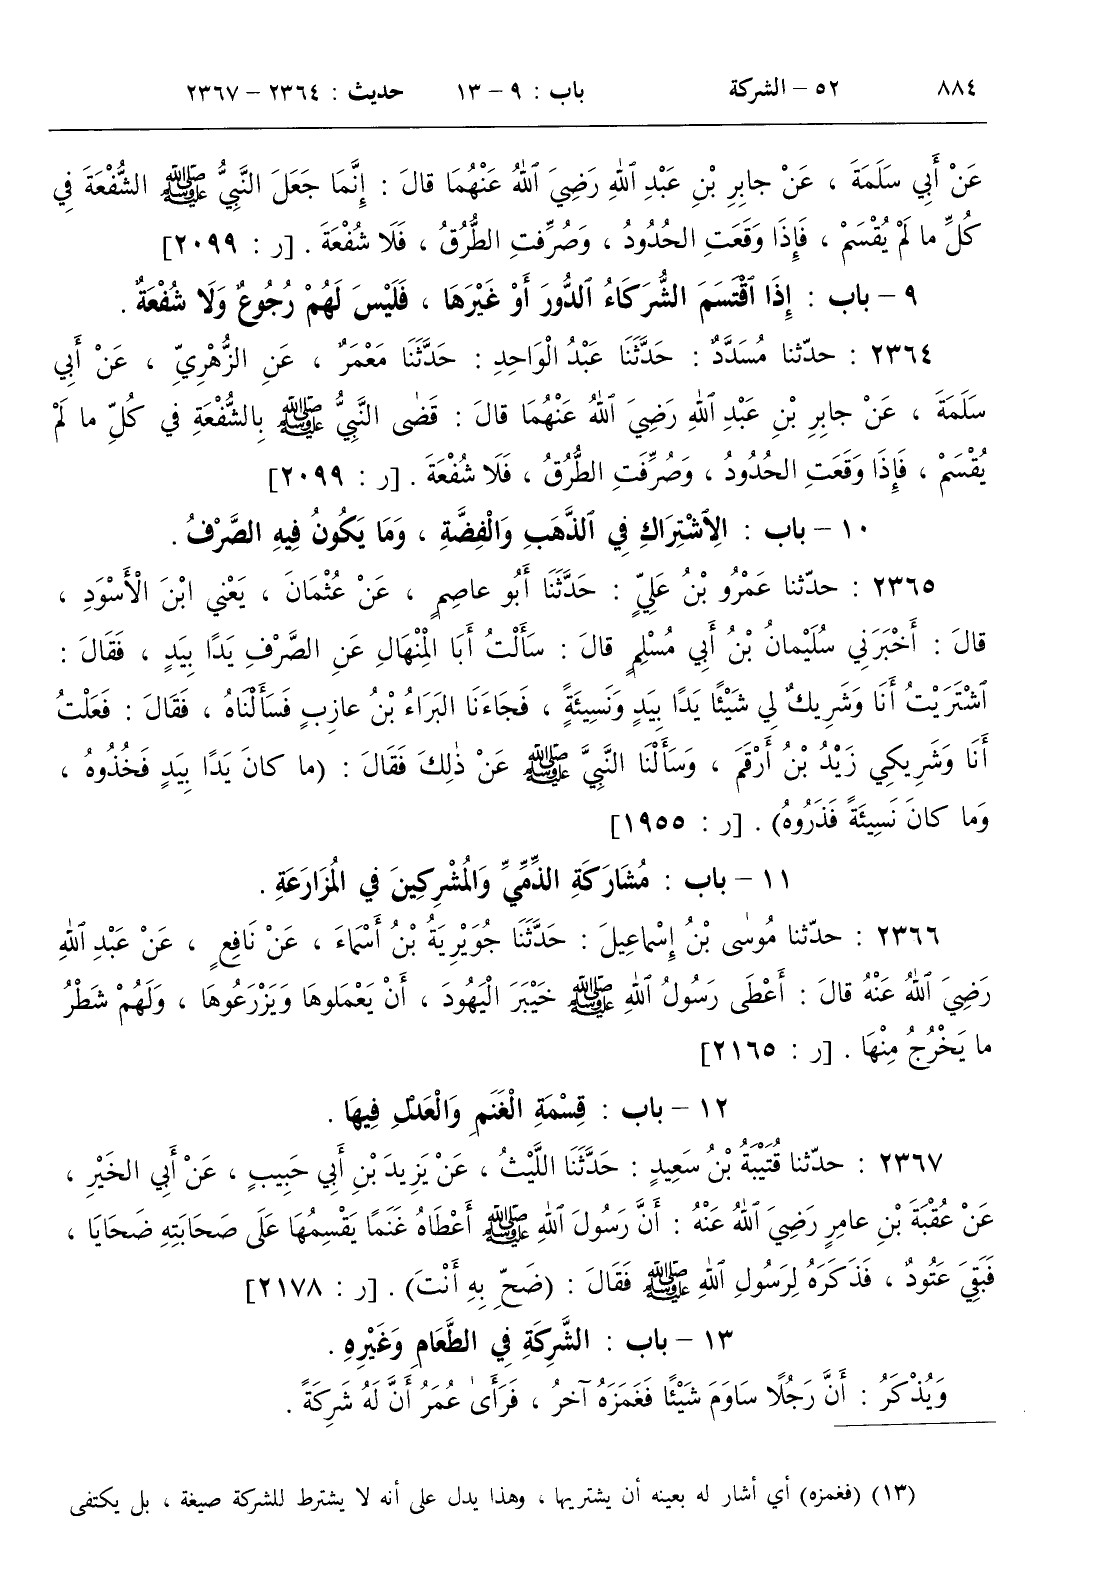 ٨٨٤ ٥٢ – الشركة باب : ٩ – ١٣ حديث : ٢٣٦٤ – ٢٣٦٧
عَنْ أَبِي سَلَمَةَ ، عَنْ جابِرِ بْنِ عَبْدِ ٱللهِ رَضِيَ ٱللهُ عَنْهُمَا قالَ : إِنَّمَا جَعَلَ النَّبِيُّ ﷺ الشُّفْعَةَ فِي
كُلِّ ما لَمْ يُقْسَمْ ، فَإِذَا وَقَعَتِ الحُدُودُ ، وَصُرِّفتِ الطُّرُقُ ، فَلَا شُفْعَةَ . [ر : ٢٠٩٩]
٩ – باب : إِذَا ٱقْتَسَمَ الشُّرَكَاءُ ٱلدُّورَ أَوْ غَيْرَهَا ، فَلَيْسَ لَهُمْ رُجُوعٌ وَلَا شُفْعَةٌ .
٢٣٦٤ : حدّثنا مُسَدَّدٌ : حَدَّثَنَا عَبْدُ الْوَاحِدِ : حَدَّثَنَا مَعْمَرٌ ، عَنِ الزُّهْرِيِّ ، عَنْ أَبِي
سَلَمَةَ ، عَنْ جابِرِ بْنِ عَبْدِ ٱللهِ رَضِيَ ٱللهُ عَنْهُمَا قالَ : قَضٰى النَّبِيُّ ﷺ بِالشُّفْعَةِ في كُلِّ ما لَمْ
يُقْسَمْ ، فَإِذَا وَقَعَتِ الحُدُودُ ، وَصُرِّفَتِ الطُّرُقُ ، فَلَا شُفْعَةَ . [ر : ٢٠٩٩]
١٠ – باب : الِٱشْتِرَاكِ فِي ٱلذَّهَبِ وَالْفِضَّةِ ، وَمَا يَكُونُ فِيهِ الصَّرْفُ .
٢٣٦٥ : حدّثنا عَمْرُو بْنُ عَلِيٍّ : حَدَّثَنَا أَبُو عاصِمٍ ، عَنْ عُثْمَانَ ، يَعْنِي ابْنَ الْأَسْوَدِ ،
قالَ : أَخْبَرَنِي سُلَيْمانُ بْنُ أَبِي مُسْلِمٍ قالَ : سَأَلْتُ أَبَا الْمِنْهَالِ عَنِ الصَّرْفِ يَدًا بِيَدٍ ، فَقَالَ :
ٱشْتَرَيْتُ أَنَا وَشَرِيكٌ لِي شَيْئًا يَدًا بِيَدٍ وَنَسِيئَةً ، فَجَاءَنَا البَرَاءُ بْنُ عازِبٍ فَسَأَلْنَاهُ ، فَقَالَ : فَعَلْتُ
أَنَا وَشَرِيكِي زَيْدُ بْنُ أَرْقَمَ ، وَسَأَلْنَا النَّبِيَّ ﷺ عَنْ ذٰلِكَ فَقَالَ : (ما كانَ يَدًا بِيَدٍ فَخُذُوهُ ،
وَما كانَ نَسِيئَةً فَذَرُوهُ) . [ر : ١٩٥٥]
١١ – باب : مُشَارَكَةِ الذِّمِّيِّ وَالمُشْرِكِينَ في المُزَارَعَةِ .
٢٣٦٦ : حدّثنا مُوسٰى بْنُ إِسْماعِيلَ : حَدَّثَنَا جُوَيْرِيَةُ بْنُ أَسْمَاءَ ، عَنْ نَافِعٍ ، عَنْ عَبْدِ ٱللهِ
رَضِيَ ٱللهُ عَنْهُ قالَ : أَعْطَى رَسُولُ ٱللهِ ﷺ خَيْبَرَ الْيَهُودَ ، أَنْ يَعْمَلوهَا وَيَزْرَعُوهَا ، وَلَهُمْ شَطْرُ
ما يَخْرُجُ مِنْهَا . [ر : ٢١٦٥]
١٢ – باب : قِسْمَةِ الْغَنَمِ وَالْعَدْلِ فِيهَا .
٢٣٦٧ : حدّثنا قُتَيْبَةُ بْنُ سَعِيدٍ : حَدَّثَنَا اللَّيْثُ ، عَنْ يَزِيدَ بْنِ أَبِي حَبِيبٍ ، عَنْ أَبِي الخَيْرِ ،
عَنْ عُقْبَةَ بْنِ عامِرٍ رَضِيَ ٱللهُ عَنْهُ : أَنَّ رَسُولَ ٱللهِ ﷺ أَعْطَاهُ غَنَمًا يَقْسِمُهَا عَلَى صَحَابَتِهِ ضَحَايَا ،
فَبَقِيَ عَتُودٌ ، فَذَكَرَهُ لِرَسُولِ ٱللهِ ﷺ فَقَالَ : (ضَحِّ بِهِ أَنْتَ) . [ر : ٢١٧٨]
١٣ – باب : الشَّرِكَةِ فِي الطَّعَامِ وَغَيْرِهِ .
وَيُذْكَرُ : أَنَّ رَجُلًا سَاوَمَ شَيْئًا فَغَمَزَهُ آخرُ ، فَرَأَىٰ عُمَرُ أَنَّ لَهُ شَرِكَةً .
(١٣) (فغمزه) أي أشار له بعينه أن يشتريها ، وهذا يدل على أنه لا يشترط للشركة صيغة ، بل يكتفى